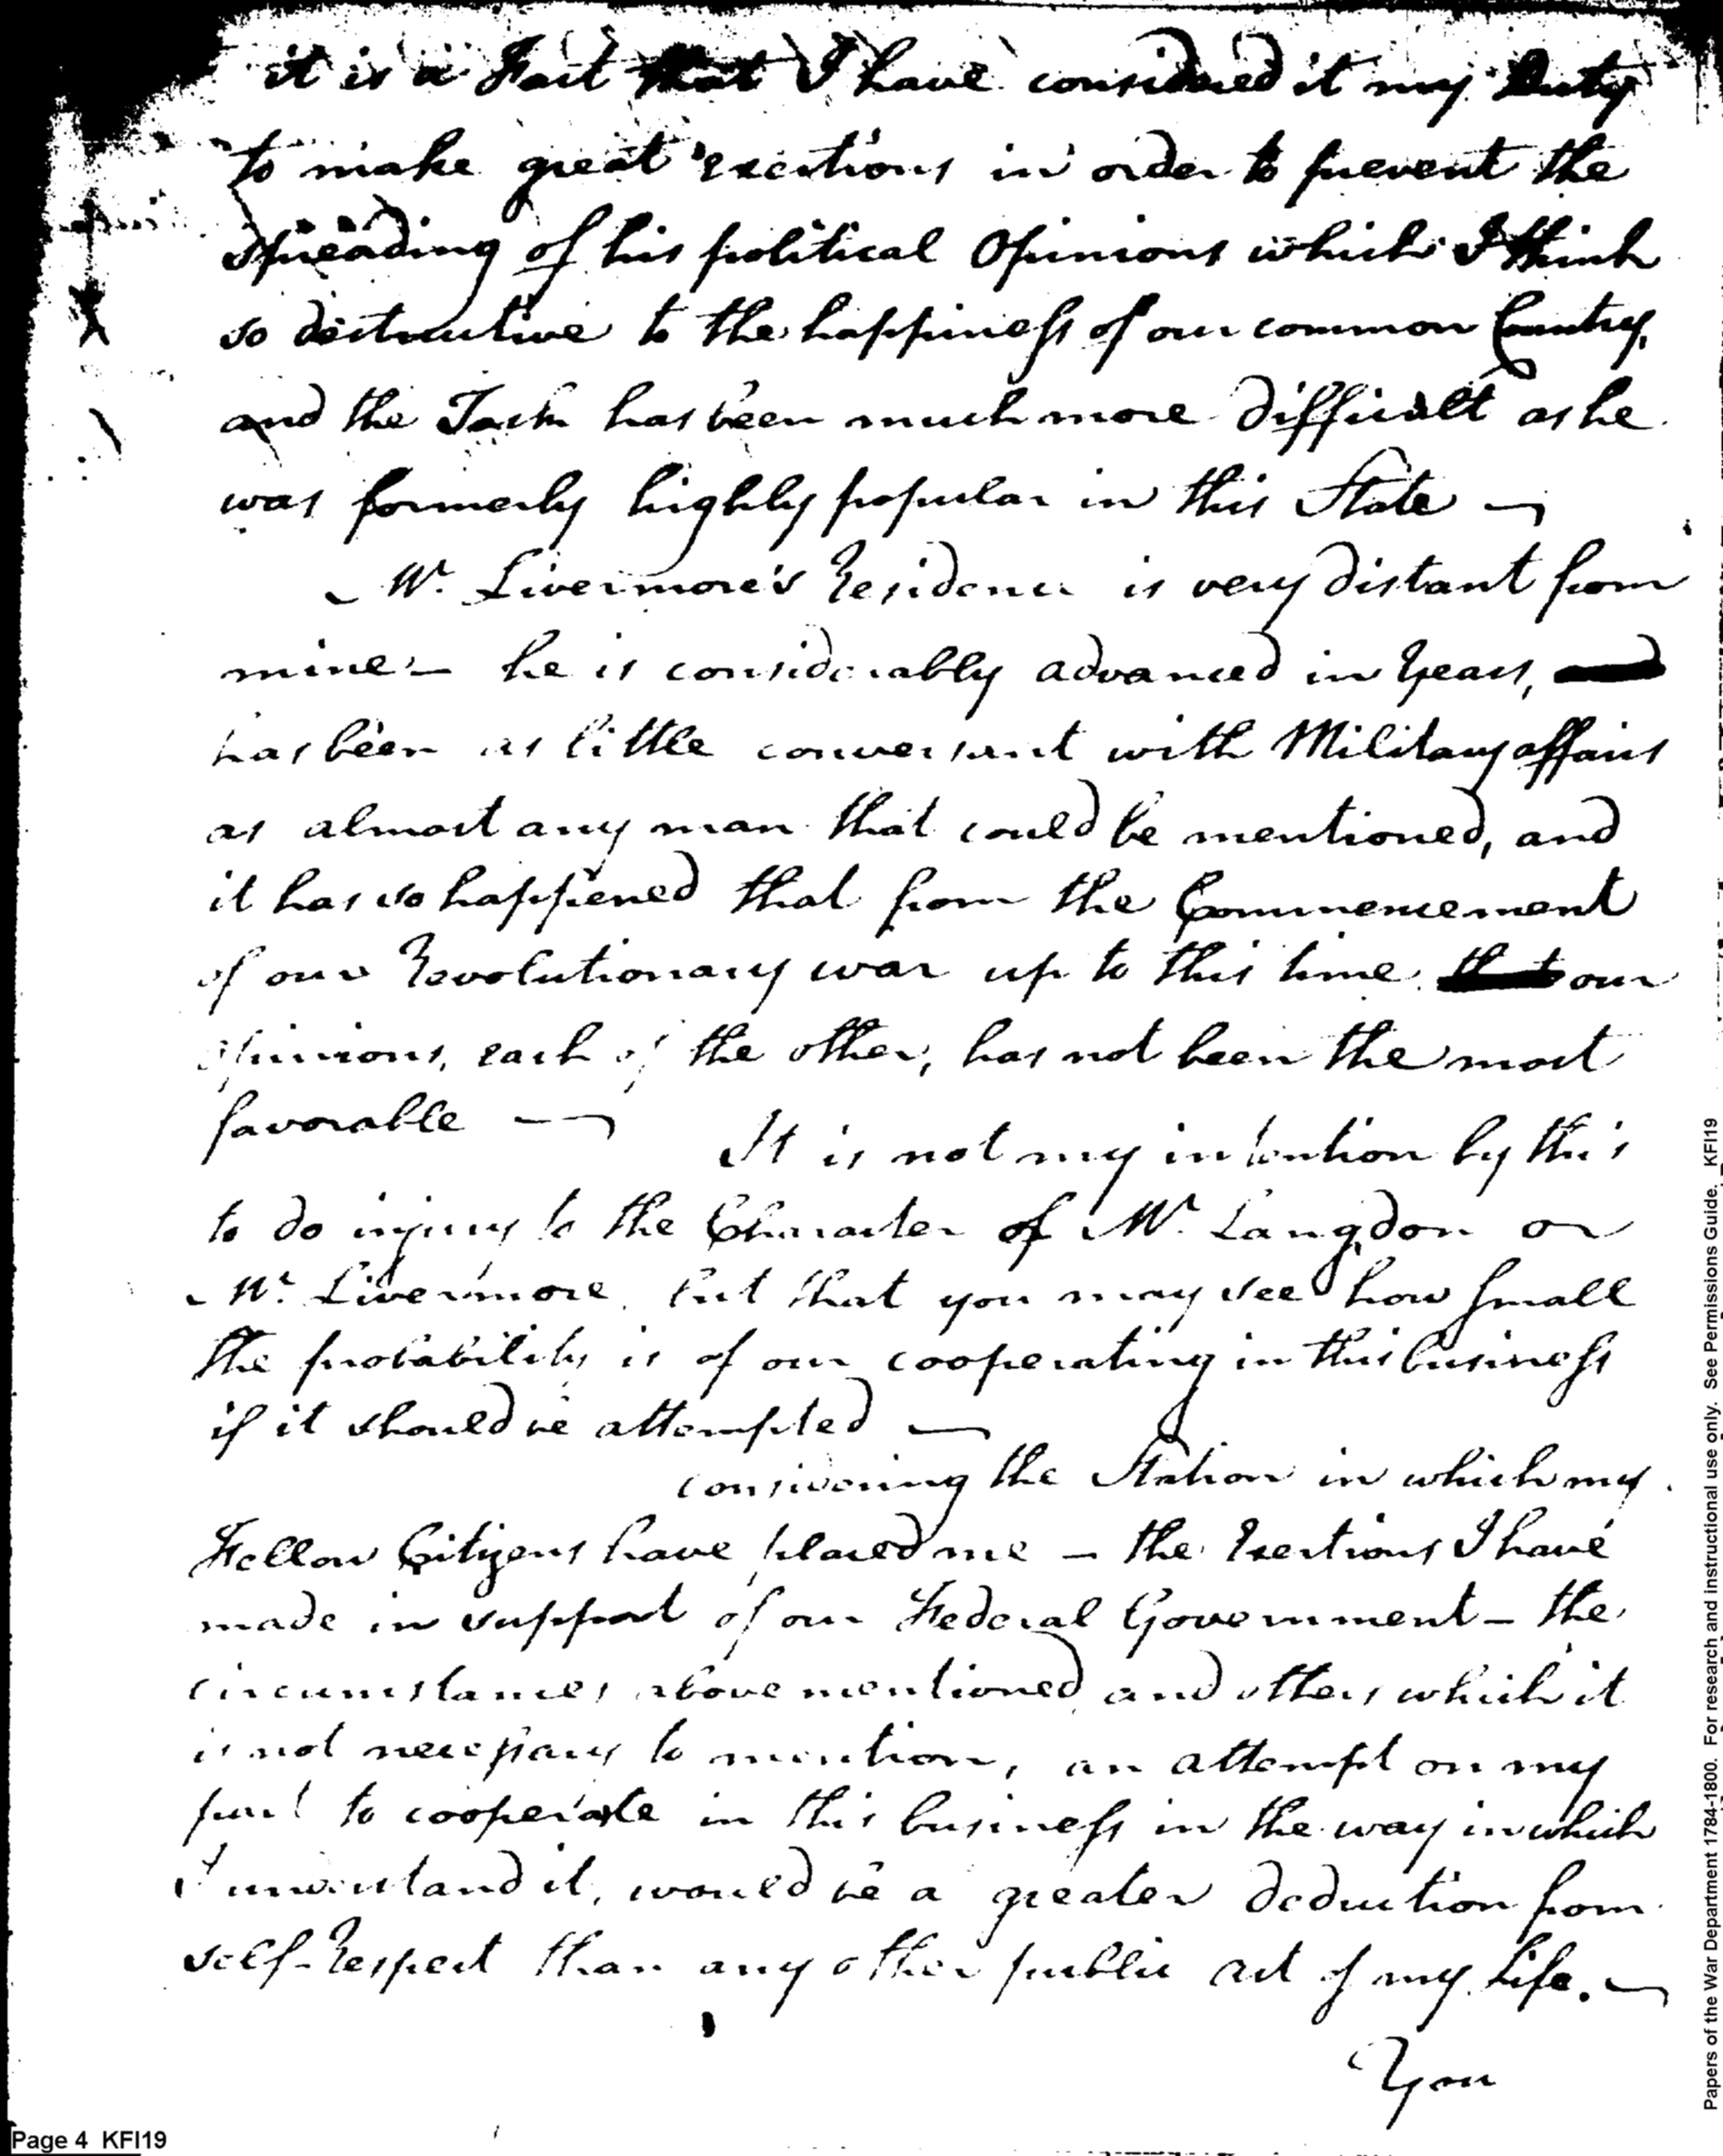 it is a Fact that I have considered it my Duty
to make great exertions in order to prevent the
spreading of his political Opinions which I think
so destructive to the happiness of our common Country,
and the Task has been much more difficult as he
was formerly highly popular in this State —
Mr. Livermore's Residence is very distant from
mine — he is considerably advanced in Years,
has been as little conversant with Military affairs
as almost any man that could be mentioned, and
it has so happened that from the Commencement
of our Revolutionary war up to this time our
opinions, each of the other, has not been the most
favorable —
It is not my intention by this
to do injury to the Character of Mr. Langdon or
Mr. Livermore, but that you may see how small
the probability is of our cooperating in this business
if it should be attempted —
considering the Station in which my
Fellow Citizens have placed me — the Exertions I have
made in support of our Federal Government — the
circumstances above mentioned and others which it
is not necessary to mention, an attempt on my
part to cooperate in this business in the way in which
I understand it, would be a greater deduction from
self-Respect than any other public act of my Life. —
You
Page 4 KFI19
Papers of the War Department 1784-1800. For research and instructional use only. See Permissions Guide. KFI19